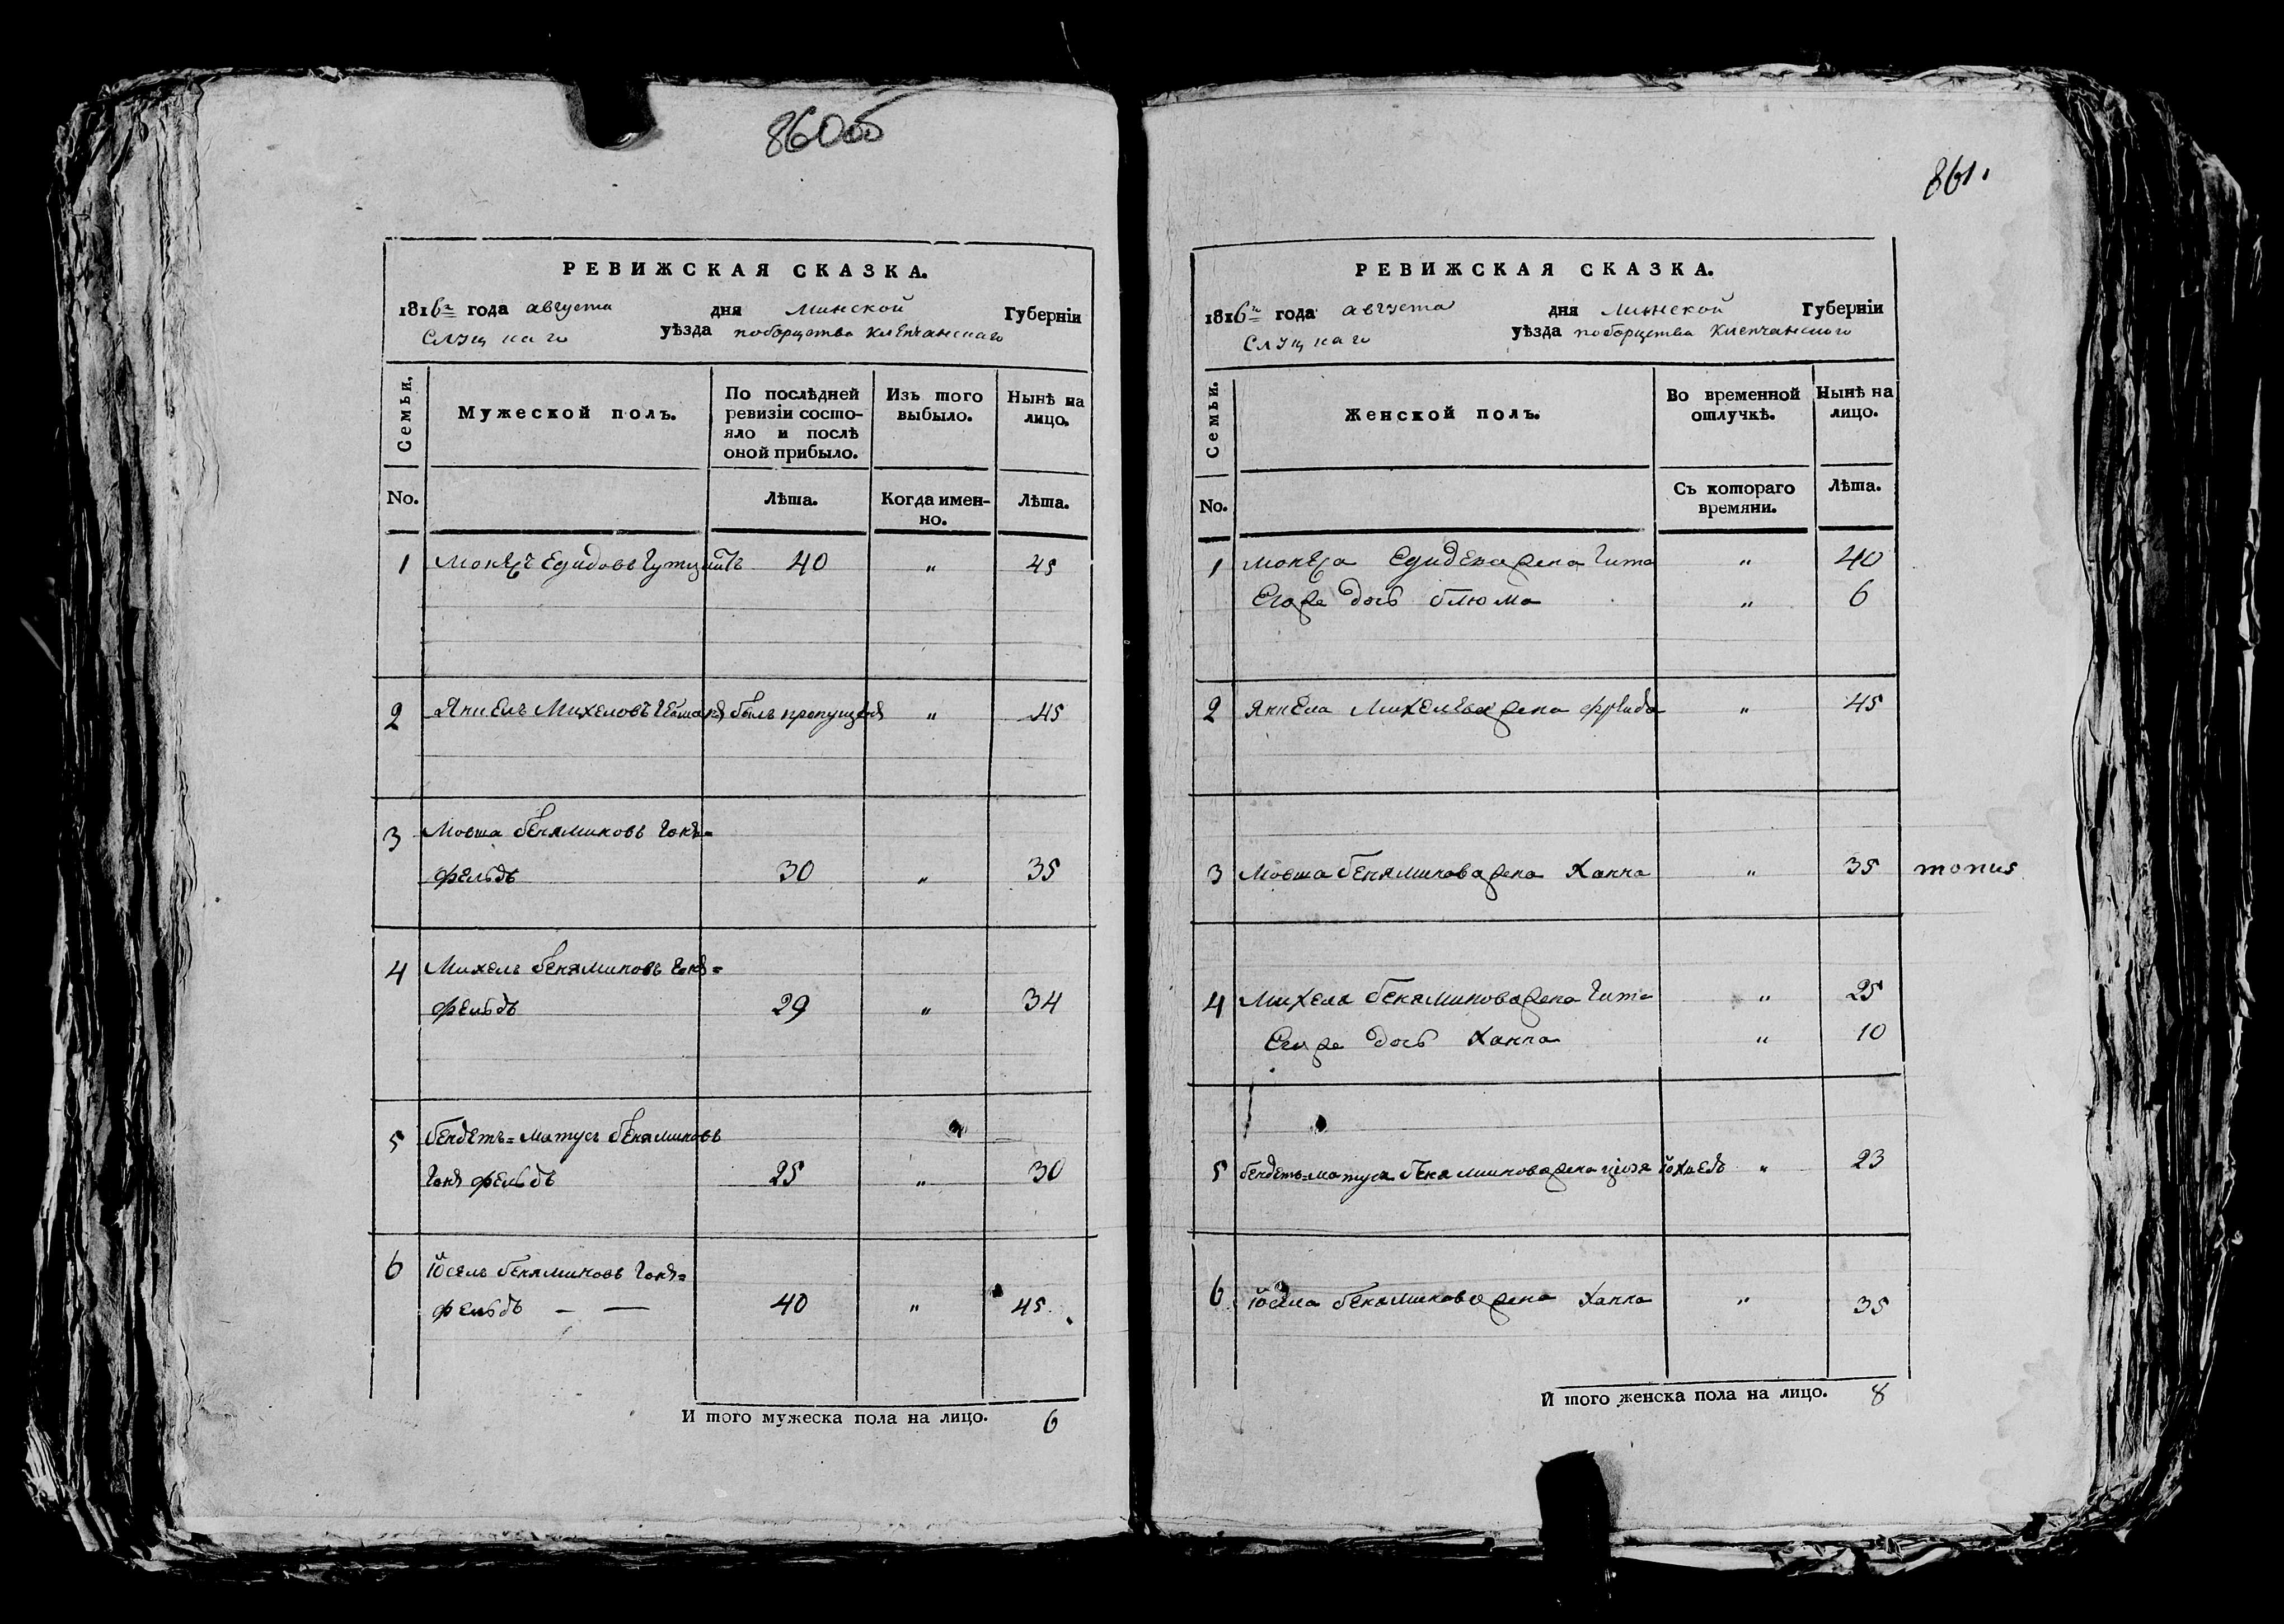 860об
РЕВИЖСКАЯ СКАЗКА.
1816го года августа дня Минской Губерніи
Слуцкаго уѣзда поборцтва Клепчанскаго
Семьи. Мужеской полъ. По послѣдней ревизіи состояло и послѣ оной прибыло. Изъ того выбыло. Нынѣ на лицо.
No. Лѣта. Когда именно. Лѣта.
1 40 " 45
2 Янкель Михелевъ былъ пропущенъ " 45
3 Мовша Беняминовъ Гонъ=
фельдъ 30 " 35
4 Михель Беняминовъ Гонъ=
фельдъ 29 " 34
5 Бендетъ=Матусъ Беняминовъ
Гонъфельдъ 25 " 30
6 Іосель Беняминовъ Гонъ=
фельдъ — — 40 " 45
И того мужеска пола на лицо. 6
861.
РЕВИЖСКАЯ СКАЗКА.
1816го года августа дня Минской Губерніи
Слуцкаго уѣзда поборцтва Клепчанского
Семьи. Женской полъ. Во временной отлучкѣ. Нынѣ на лицо.
No. Съ котораго времяни. Лѣта.
1 жена Гита " 40
Его же дочь Блюма " 6
2 Янкеля Михелева жена Фрида " 45
3 Мовша Беняминова жена Ханна " 35 monus
4 Михеля Беняминова жена Гита " 25
Его же дочь Ханна " 10
5 Бендетъ=Матуса Беняминова жена " 23
6 Іоселя Беняминова жена Ханна " 35
И того женска пола на лицо. 8